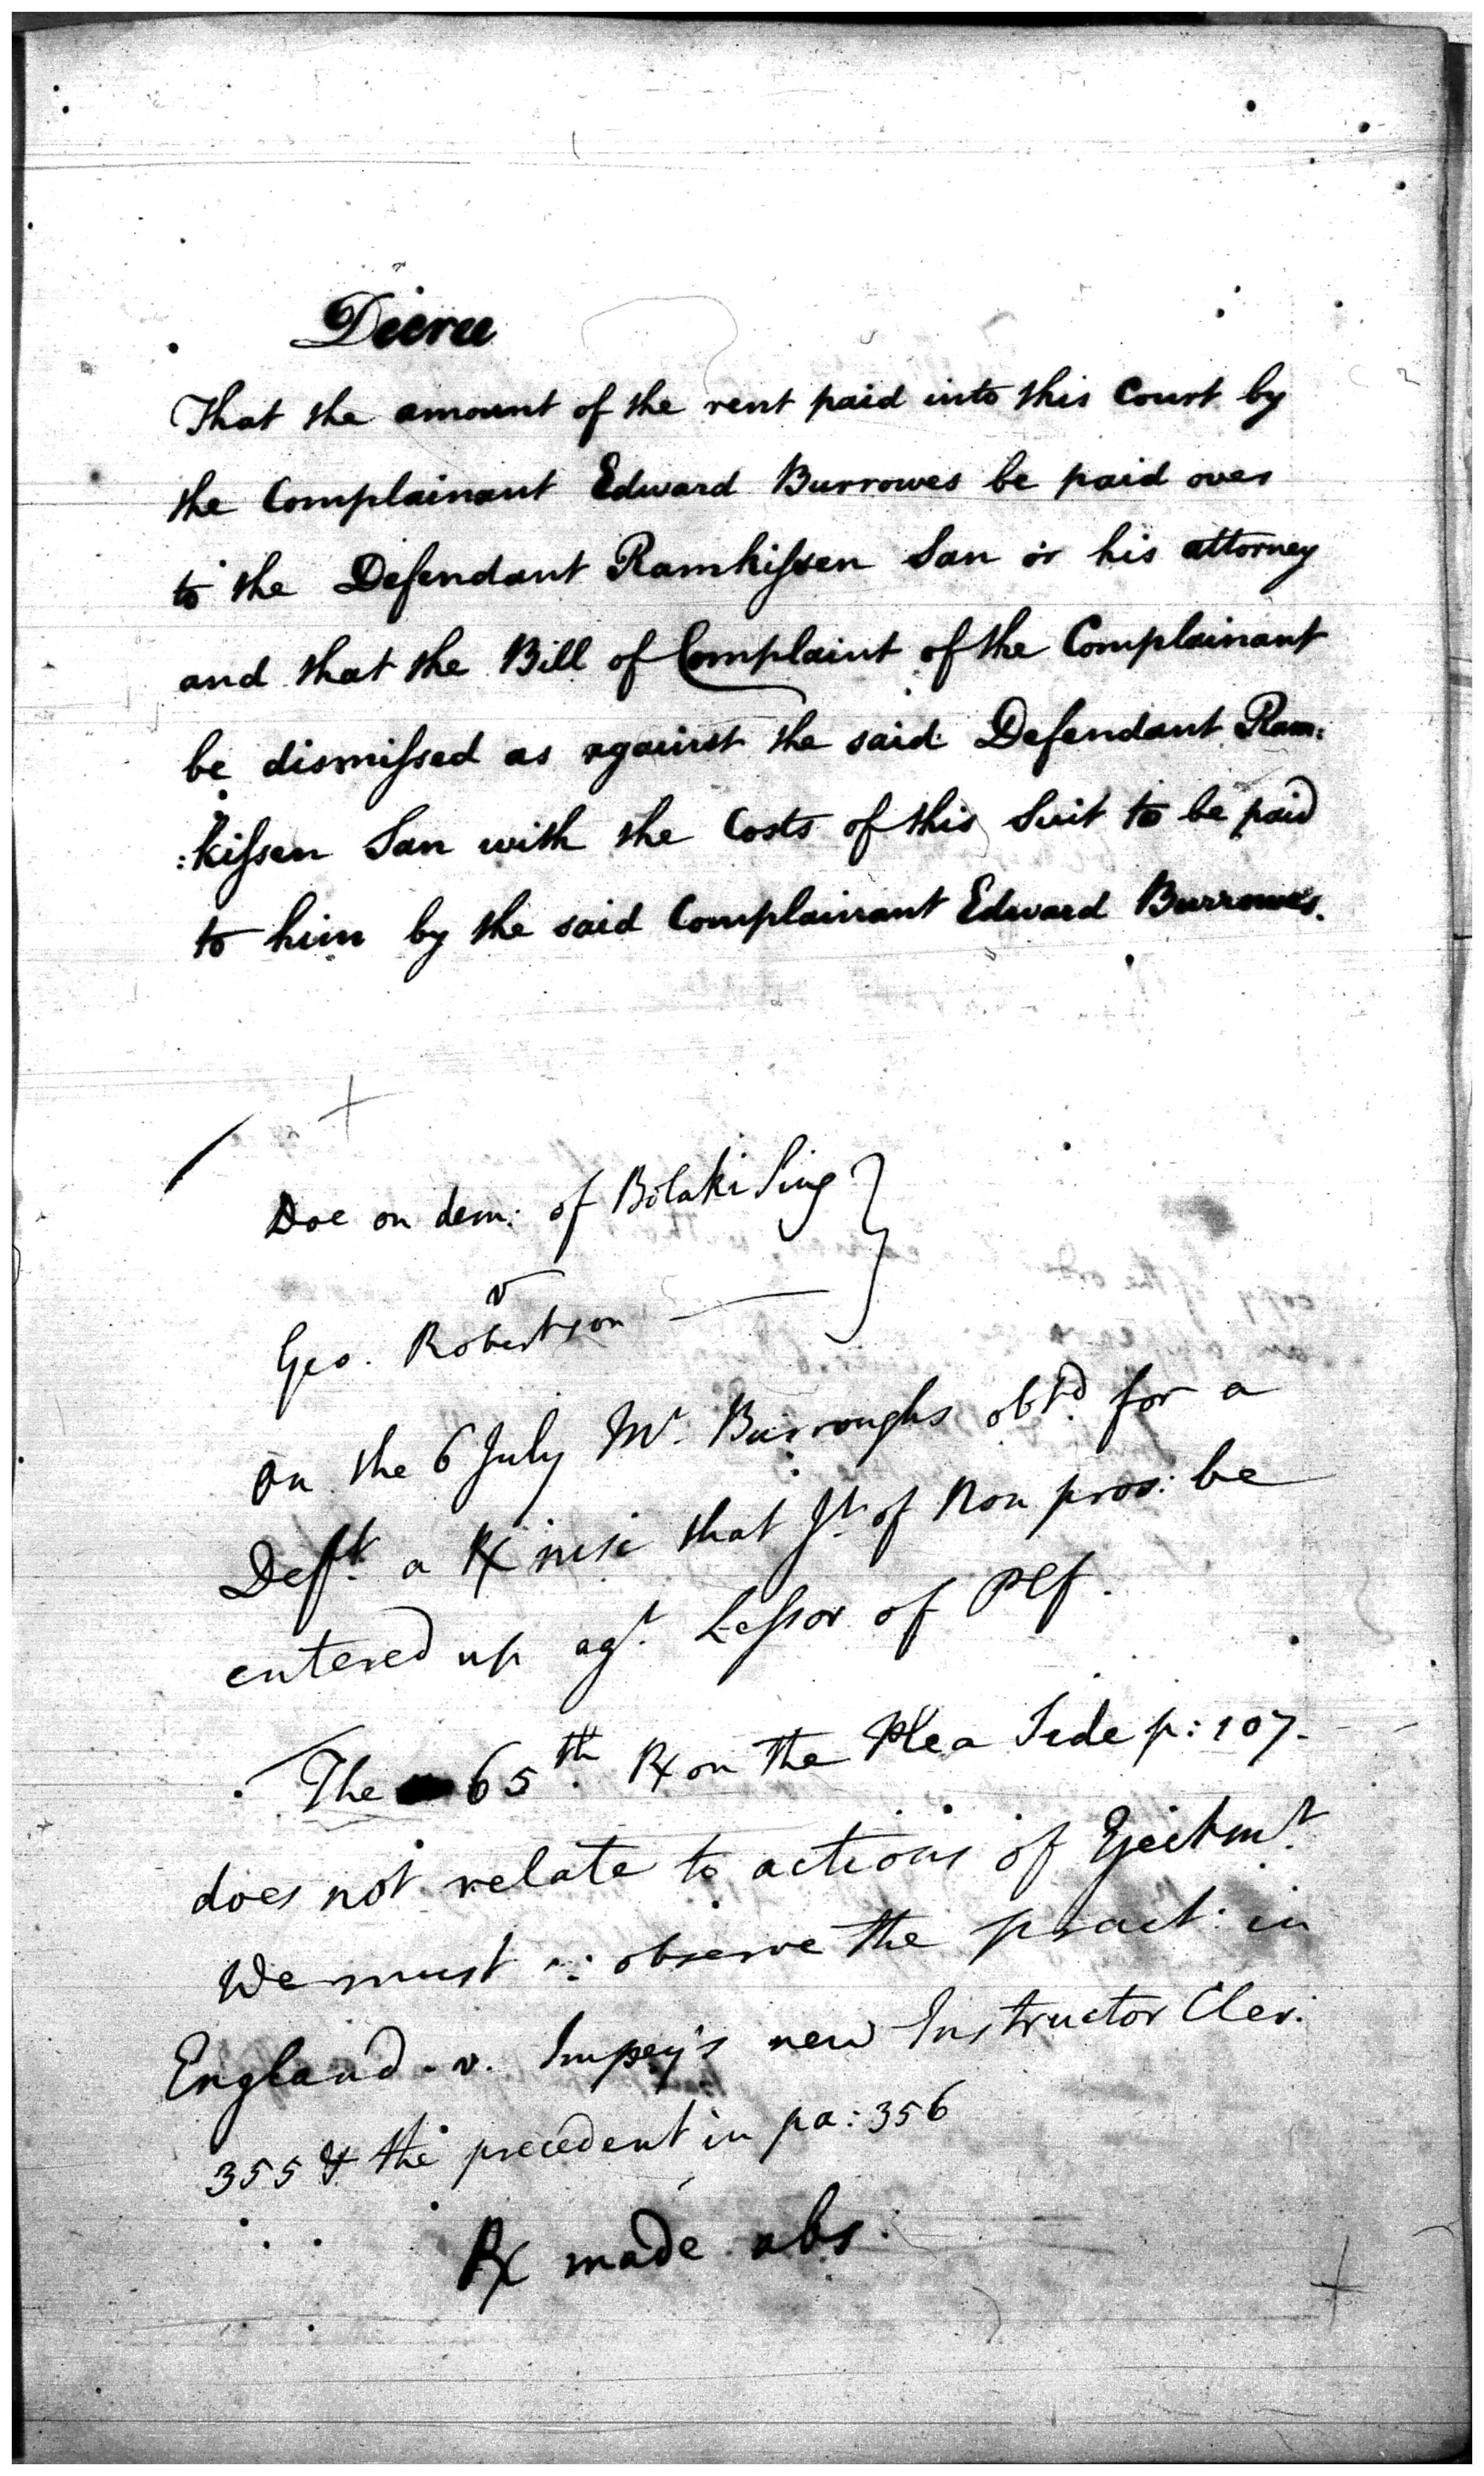 Decree
That the amount of the rent paid into this Court by
the Complainant Edward Burrowes be paid over
to the Defendant Ramkissen San or his attorney
and that the Bill of Complaint of the Complainant
be dismissed as against the said Defendant Ram:
:kissen San with the Costs of this Suit to be paid
to him by the said Complainant Edward Burrowes.
Doe on dem: of Bolaki Sing
v
Geo. Robertson
on the 6 July Mr. Burroughs obtd. for a
Deft. a Rx nisi that Jt. of Non pros: be
entered up agt. Lessor of Plf.
The 65th. Rx on the Plea Side p: 107.
does not relate to actions of Ejectmt.
We must ∴ observe the pract: in
England - v. Impey's new Instructor Cler:
355 & the precedent in pa: 356
Rx made abs.